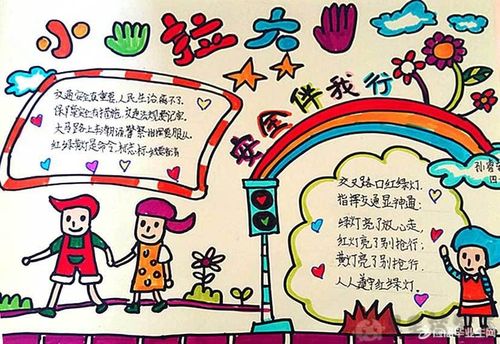 小拉大
安全伴我行
交通安全很重要,人民生活离不了.
保护安全有措施,交通法规要记牢.
大马路上有朝派警察指挥要服从.
红绿黄灯是命令,标志标线要看清
交叉路口红绿灯.
指挥交通显神通;
绿灯亮了放心走
红灯亮了别抢行;
黄灯亮了别抢行;
人人遵守红绿灯.